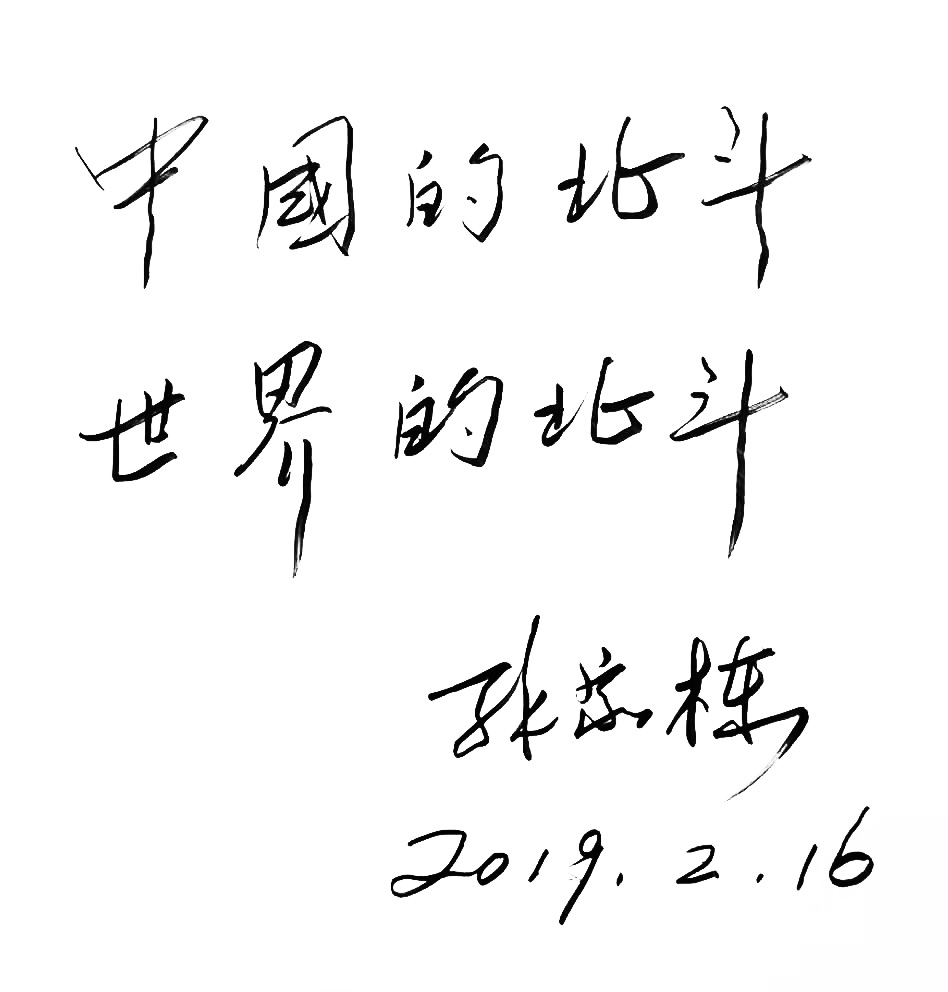 中國的北斗
世界的北斗
孙家栋
2019.2.16